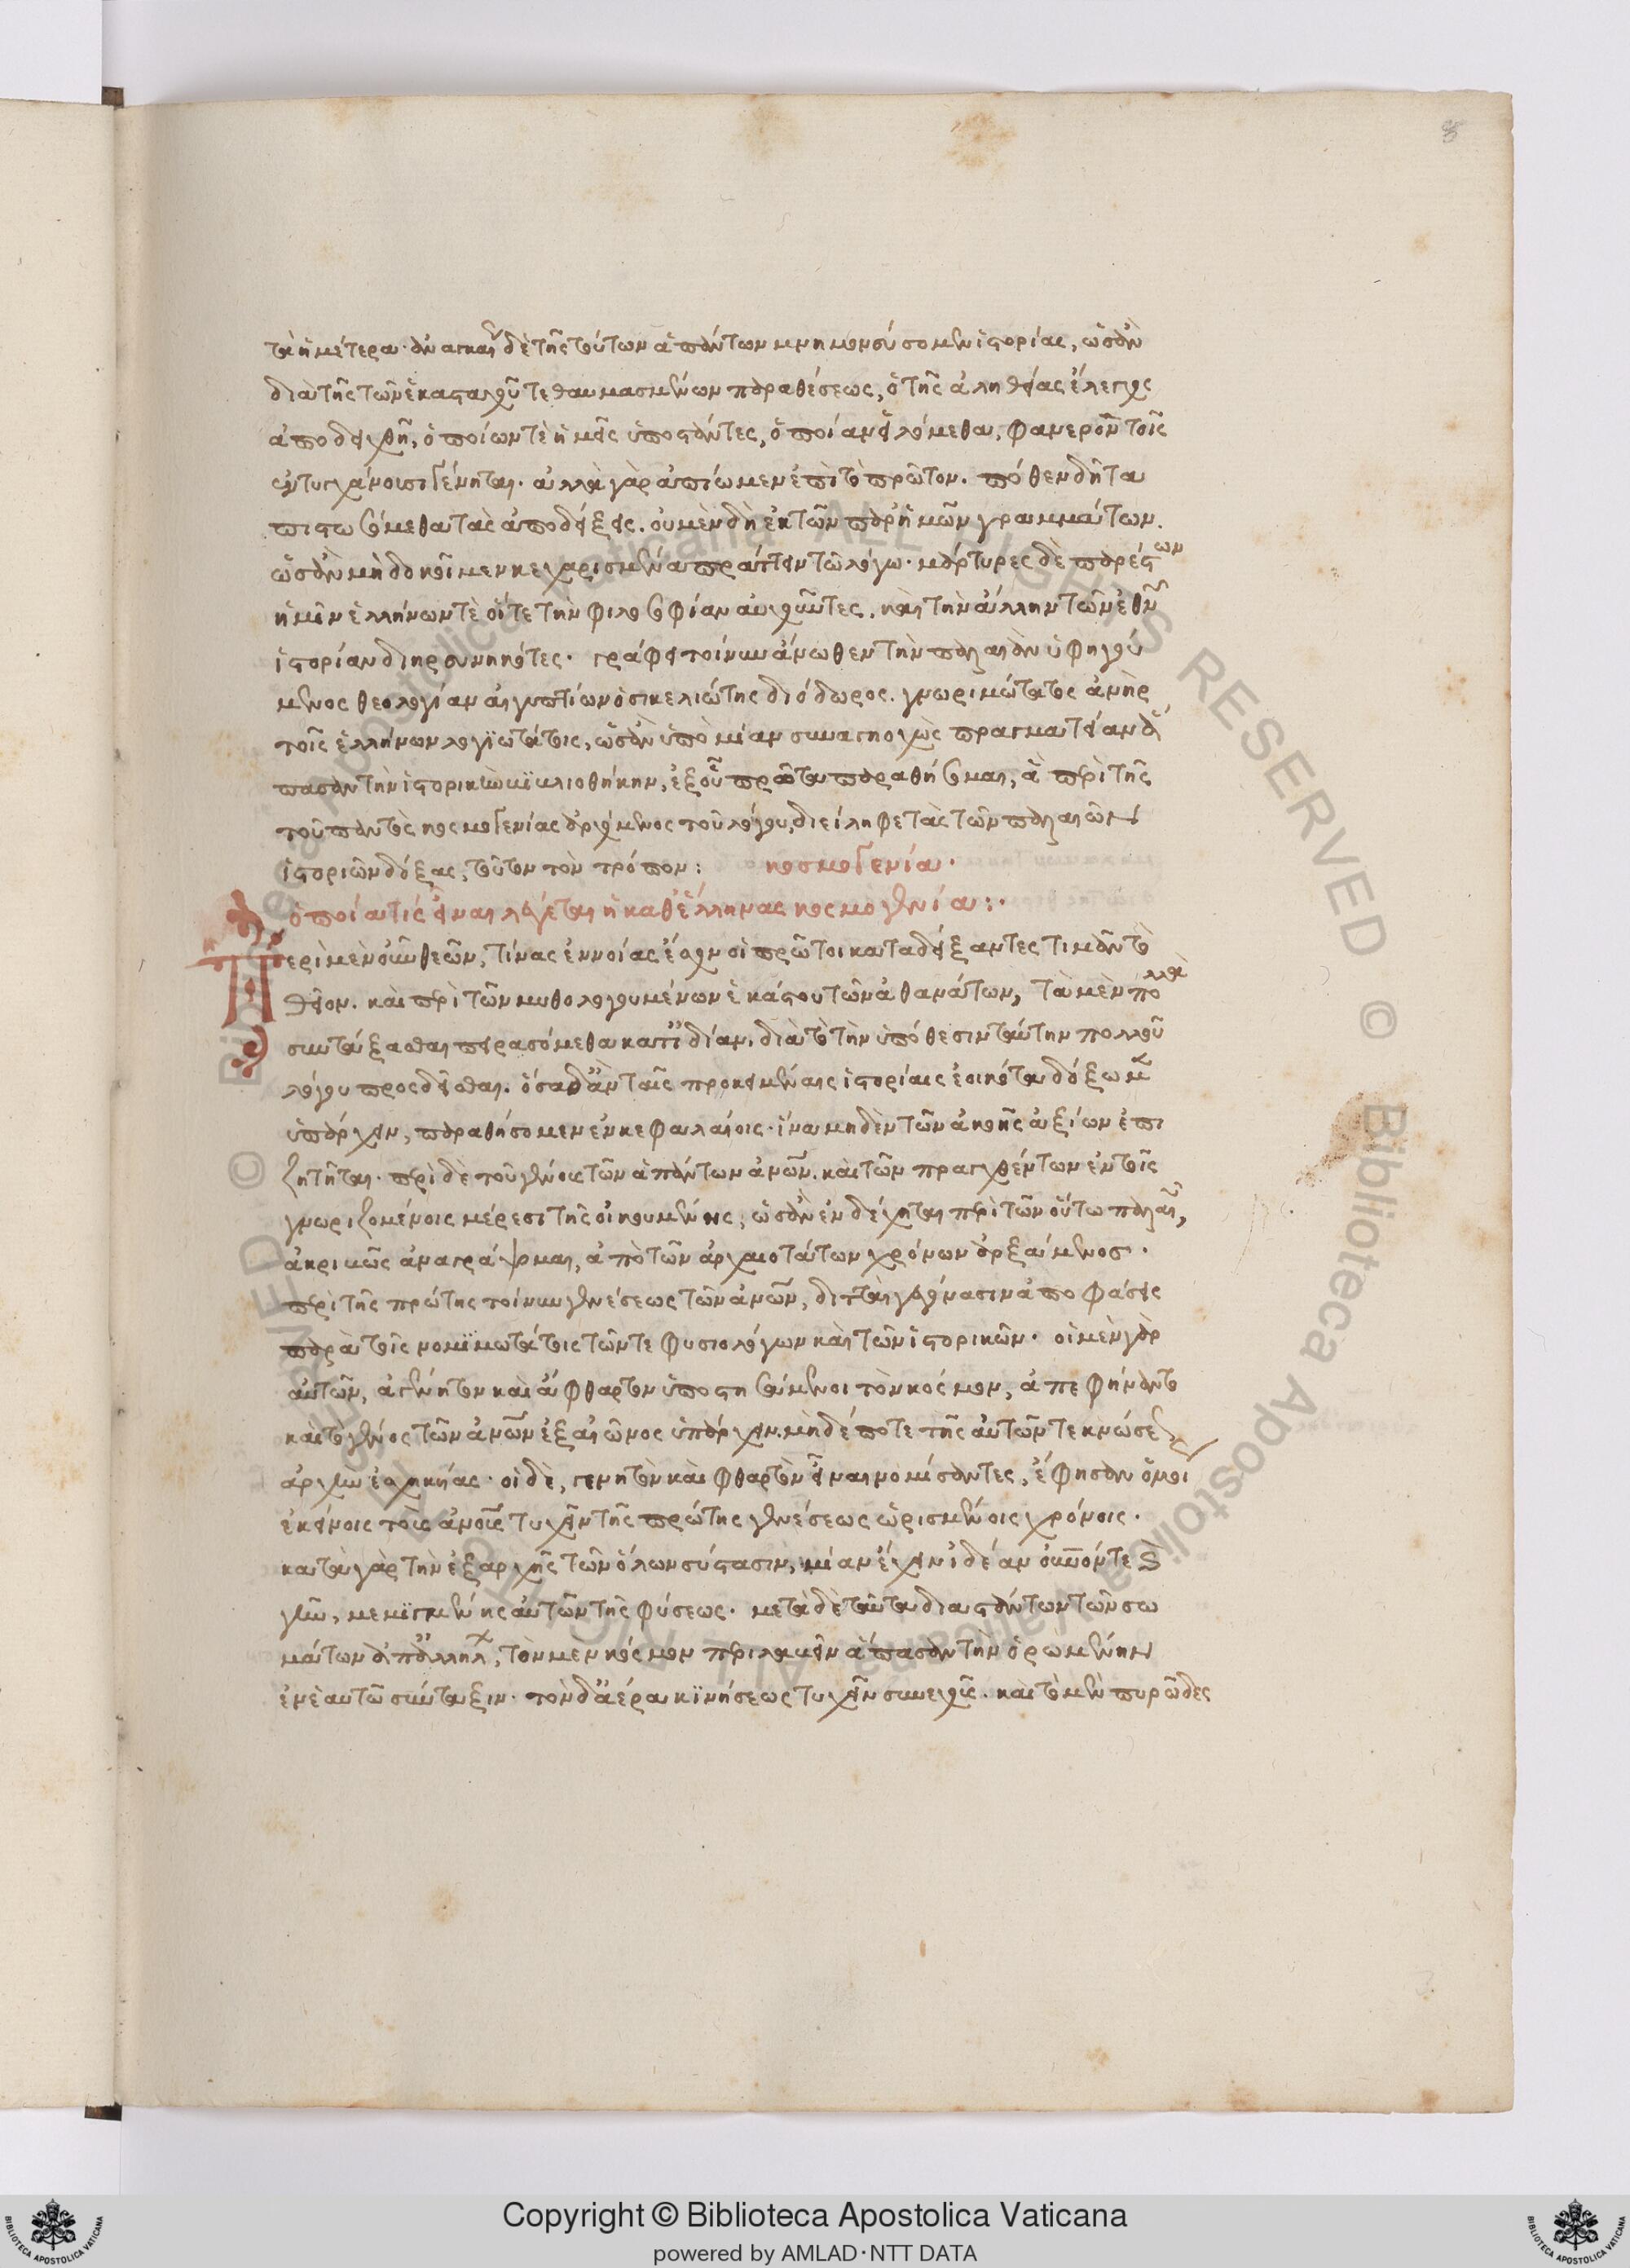 8
τὰ ἡμέτερα· ἀναγκαίως δὲ τῆς τούτων ἁπάντων μνημονεύσομεν ἱστορίας, ὡς ἂν
διὰ τῆς τῶν ἑκασταχοῦ τεθαυμασμένων παραθέσεως, ὁ τῆς ἀληθείας ἔλεγχος
ἀποδειχθῇ, ὁποίων τὲ ἡμεῖς ἀποστάντες, ὁποίαν εἱλόμεθα, φανερὸν τοῖς
ἐντυγχάνουσι γένηται. ἀλλὰ γὰρ ἀπίωμεν ἐπὶ τὸ πρῶτον. πόθεν δῆτα
πιστωσόμεθα τὰς ἀποδείξεις. οὐ μὲν δὴ ἐκ τῶν παρ' ἡμῶν γραμμάτων.
ὡς ἂν μὴ δοκοῖμεν κεχαρισμένα πράττειν τῷ λόγω· μάρτυρες δὲ παρέστων
ἡμῖν ἑλλήνων τὲ οἵ τε τὴν φιλοσοφίαν αὐχοῦντες. καὶ τὴν ἄλλην τῶν ἐθνῶν
ἱστορίαν διηρευνηκότες. γράφει τοίνυν ἄνωθεν τὴν παλαιὰν ὑφηγού
μενος θεολογίαν αἰγυπτίων ὁ σικελιώτης διόδωρος. γνωριμώτατος ἀνὴρ
τοῖς ἑλλήνων λογϊωτάτοις, ὡς ἂν ὑπὸ μίαν συναγηοχὼς πραγματείαν ἅ
πασαν τὴν ἱστορικὴν βϊβλιοθήκην, ἐξ οὗ πρῶτα παραθήσομαι, ἃ περὶ τῆς
τοῦ παντὸς κοσμογενίας ἀρχόμενος τοῦ λόγου, διείληφε τὰς τῶν παλαιῶν
ἱστοριῶν δόξας, τοῦτον τὸν τρόπον: κοσμογενία.
ὁποία τίς εἶναι λέγεται ἡ καθ' ἕλληνας κοσμογενία:·
Περὶ μὲν οὖν θεῶν, τίνας ἐννοίας ἔσχον οἱ πρῶτοι καταδείξαντες τιμᾶν τὸ
θεῖον. καὶ περὶ τῶν μυθολογουμένων ἑκάστου τῶν ἀθανάτων, τὰ μὲν πολλὰ
συντάξασθαι πειρασόμεθα κατ' ἰδίαν. διὰ τὸ τὴν ὑπόθεσιν ταύτην πολλοῦ
λόγου προσδεῖσθαι. ὅσα δ' ἂν ταῖς προκειμέναις ἱστορίαις ἐοικότα δόξωμεν
ὑπάρχειν, παραθήσομεν ἐν κεφαλαίοις· ἵνα μηδὲν τῶν ἀκοῆς ἀξίων ἐπι
ζητῆται. περὶ δὲ τοῦ γένους τῶν ἁπάντων ἀνων. καὶ τῶν πραχθέντων ἐν τοῖς
γνωριζομένοις μέρεσι τῆς οἰκουμένης, ὡς ἂν ἐνδέχηται περὶ τῶν οὕτω παλαιῶν,
ἀκριβῶς ἀναγράψομαι, ἀπὸ τῶν ἀρχαιοτάτων χρόνων ἀρξάμενοσ.
περὶ τῆς πρώτης τοίνυν γενέσεως τῶν ἀνων, διτταὶ γεγόνασιν ἀποφάσεις
παρὰ τοῖς νομϊμωτάτοις τῶν τε φυσιολόγων καὶ τῶν ἱστορικῶν. οἱ μὲν γὰρ
αὐτῶν, ἀγένητον καὶ ἄφθαρτον ὑποστησάμενοι τὸν κόσμον, ἀπεφήναντο
καὶ τὸ γένος τῶν ἀνων ἐξ αἰῶνος ὑπάρχειν. μὴδέποτε τῆς αὐτῶν τεκνώσεως
ἀρχὴν ἐσχηκυίας. οἱ δὲ, γενητὸν καὶ φθαρτὸν εἶναι νομίσαντες, ἔφησαν ὁμοί
ἐκείνοις τοὺς ἀνους τυχεῖν τῆς πρώτης γενέσεως ὡρισμένοις χρόνοις.
κατὰ γὰρ τὴν ἐξ ἀρχῆς τῶν ὅλων σύστασιν, μίαν ἔχειν ἰδέαν οὐνόν τε καὶ
γῆν, μεμϊγμένης αὐτῶν τῆς φύσεως. μετὰ δὲ ταῦτα διαστάντων τῶν σω
μάτων ἀπ' ἀλλήλων, τὸν μεν κόσμον περιλαβεῖν ἅπασαν τὴν ὁρωμένην
ἐν ἑαυτῶ σύνταξιν. τὸν δ' ἀέρα κϊνήσεως τυχεῖν συνεχοῦς. καὶ τὸ μὲν πυρῶδες
Copyright © Biblioteca Apostolica Vaticana
powered by AMLAD·NTT DATA